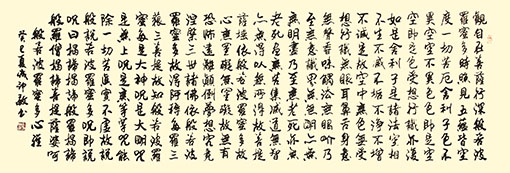 觀自在菩薩行深般若波
羅蜜多時照見五蘊皆空
度一切苦厄舍利子色不
異空空不異色色即是空
空即是色受想行識亦復
如是舍利子是諸法空相
不生不滅不垢不淨不增
不減是故空中無色無受
想行識無眼耳鼻舌身意
無色聲香味觸法無眼界乃
至無意識界無無明亦無
無明盡乃至無老死亦無
老死盡無苦集滅道無智
亦無得以無所得故菩提
薩埵依般若波羅蜜多故
心無罣礙無罣礙故無有
恐怖遠離顛倒夢想究竟
涅槃三世諸佛依般若波
羅蜜多故得阿耨多羅三
藐三菩提故知般若波羅
蜜多是大神咒是大明咒
是無上咒是無等等咒能
除一切苦真實不虛故說
般若波羅蜜多咒即說
咒曰揭諦揭諦波羅揭諦
般羅僧揭諦菩提薩婆訶
般若波羅蜜多心經
癸巳夏